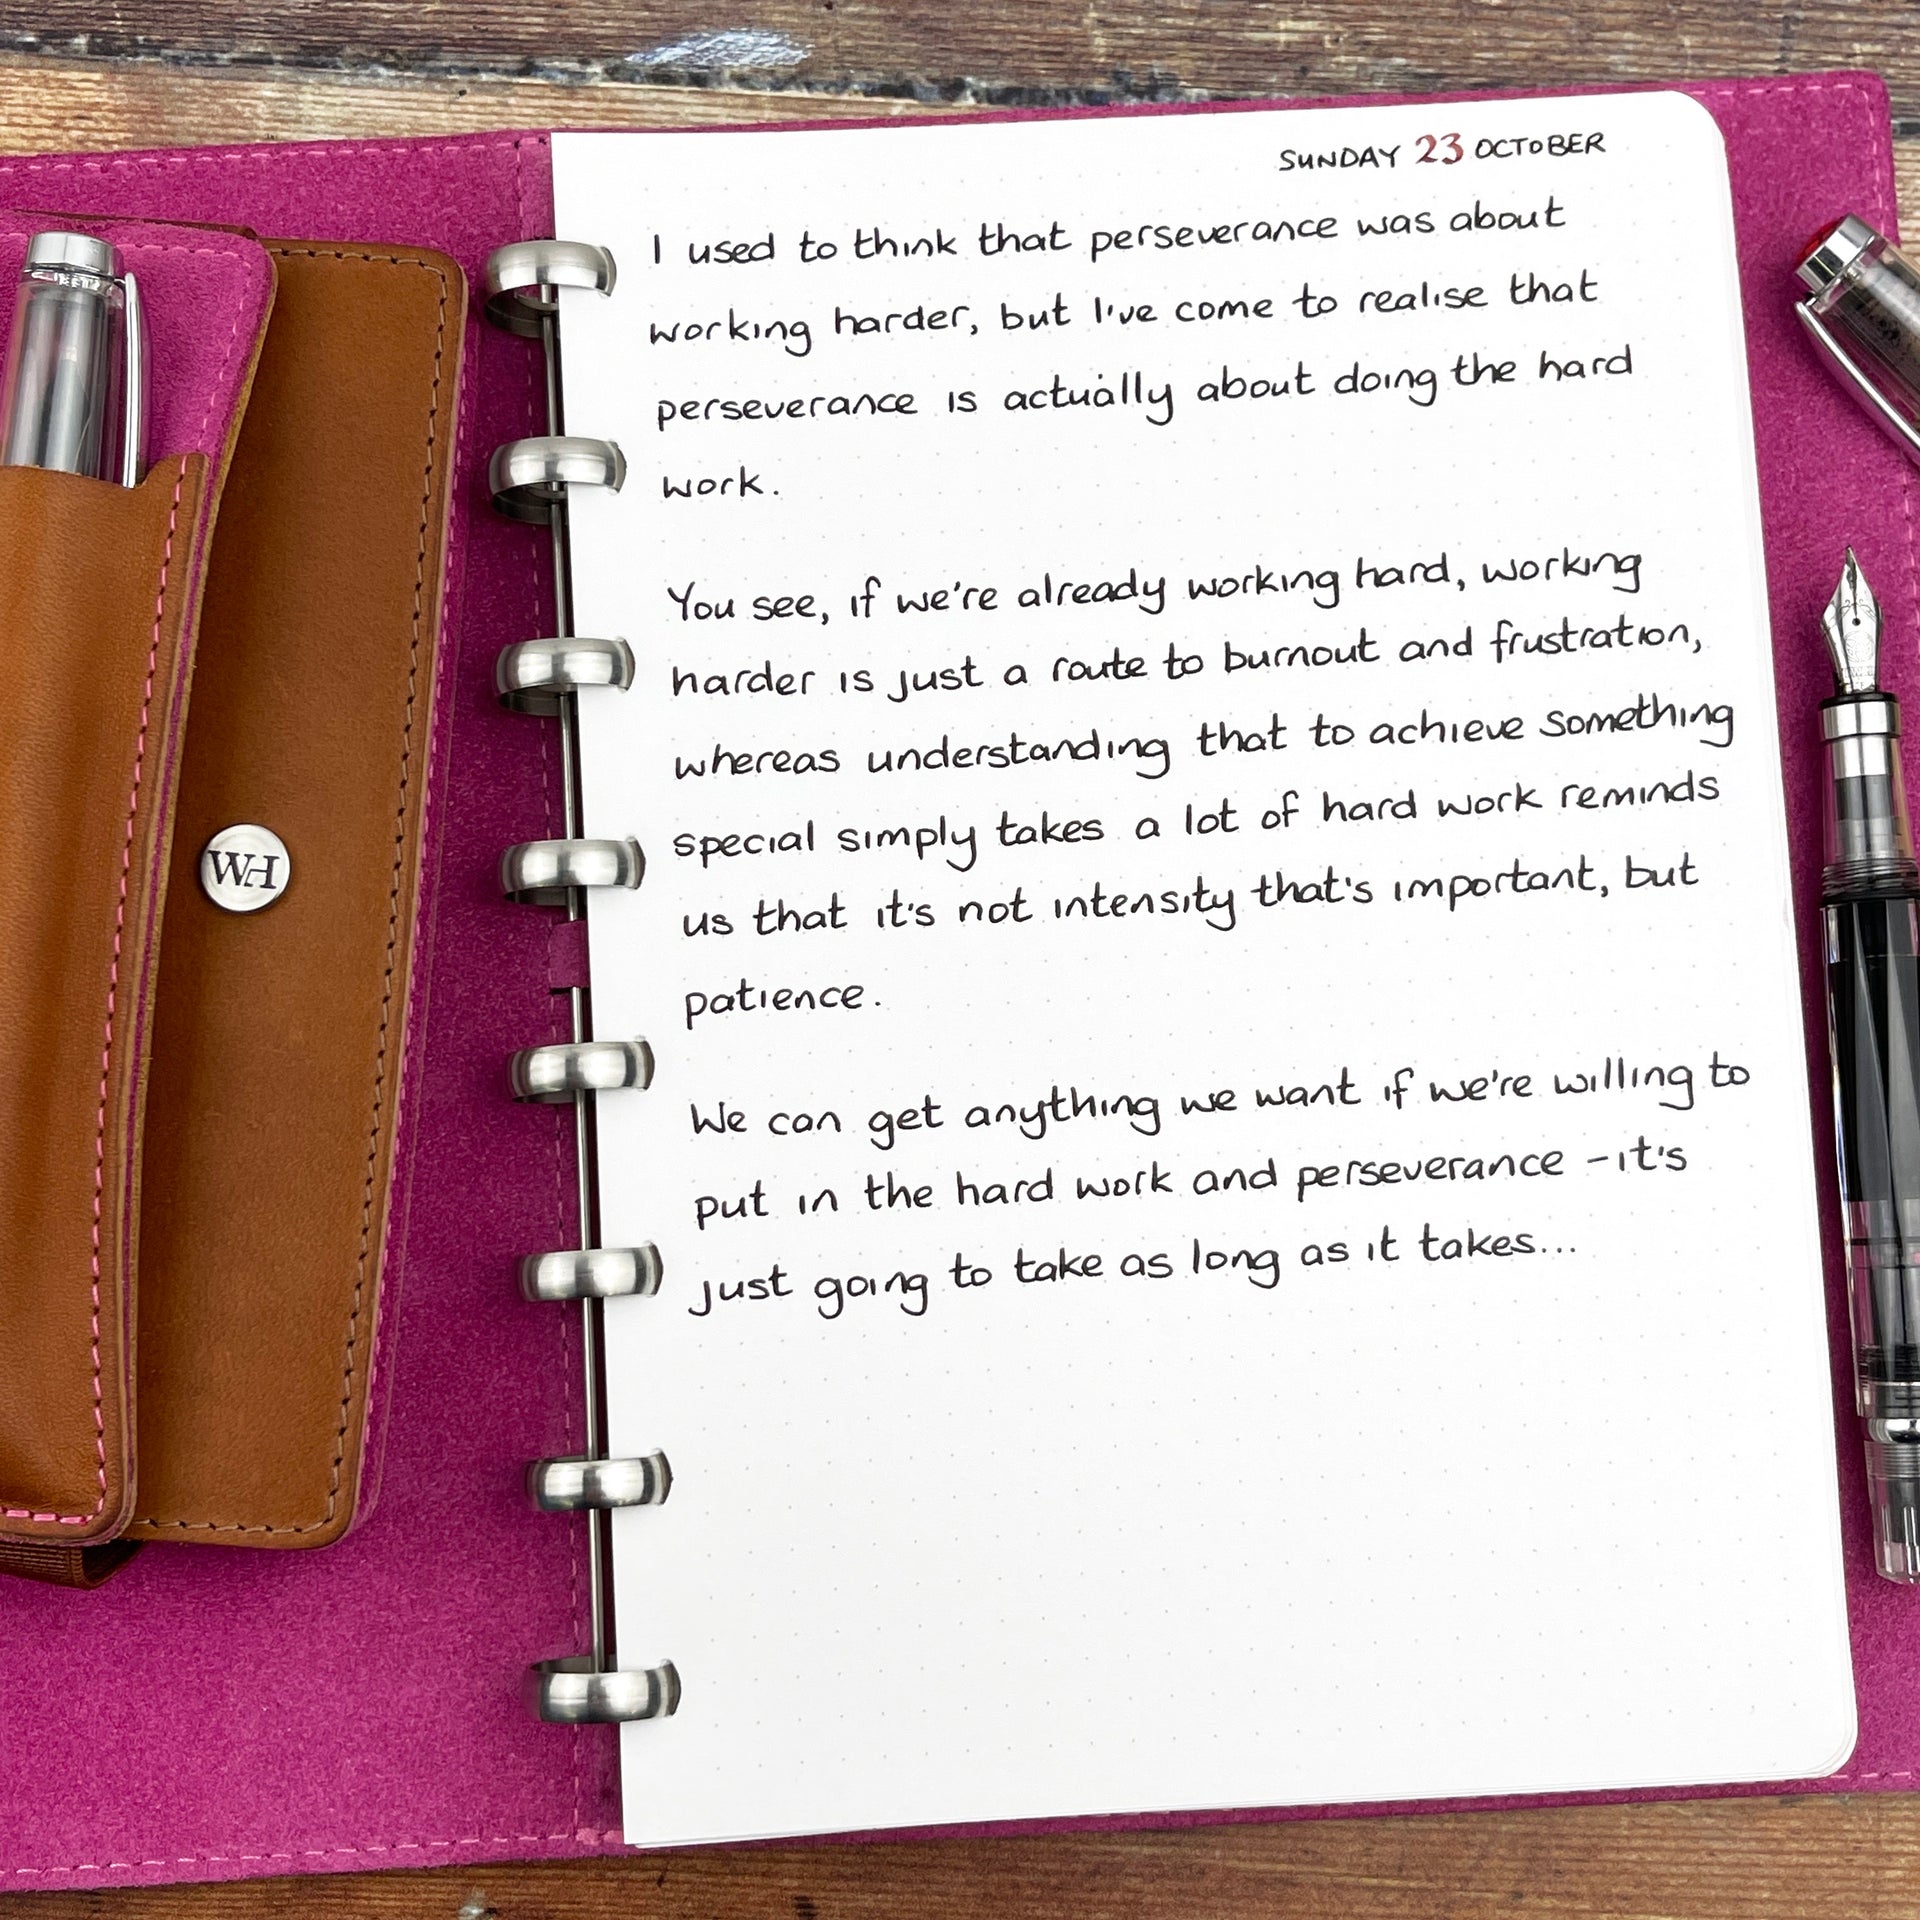 SUNDAY 23 OCTOBER
I used to think that perseverance was about
working harder, but I've come to realise that
perseverance is actually about doing the hard
work.
You see, if we're already working hard, working
harder is just a route to burnout and frustration,
whereas understanding that to achieve something
special simply takes a lot of hard work reminds
us that it's not intensity that's important, but
patience.
We can get anything we want if we're willing to
put in the hard work and perseverance - it's
just going to take as long as it takes...
WH